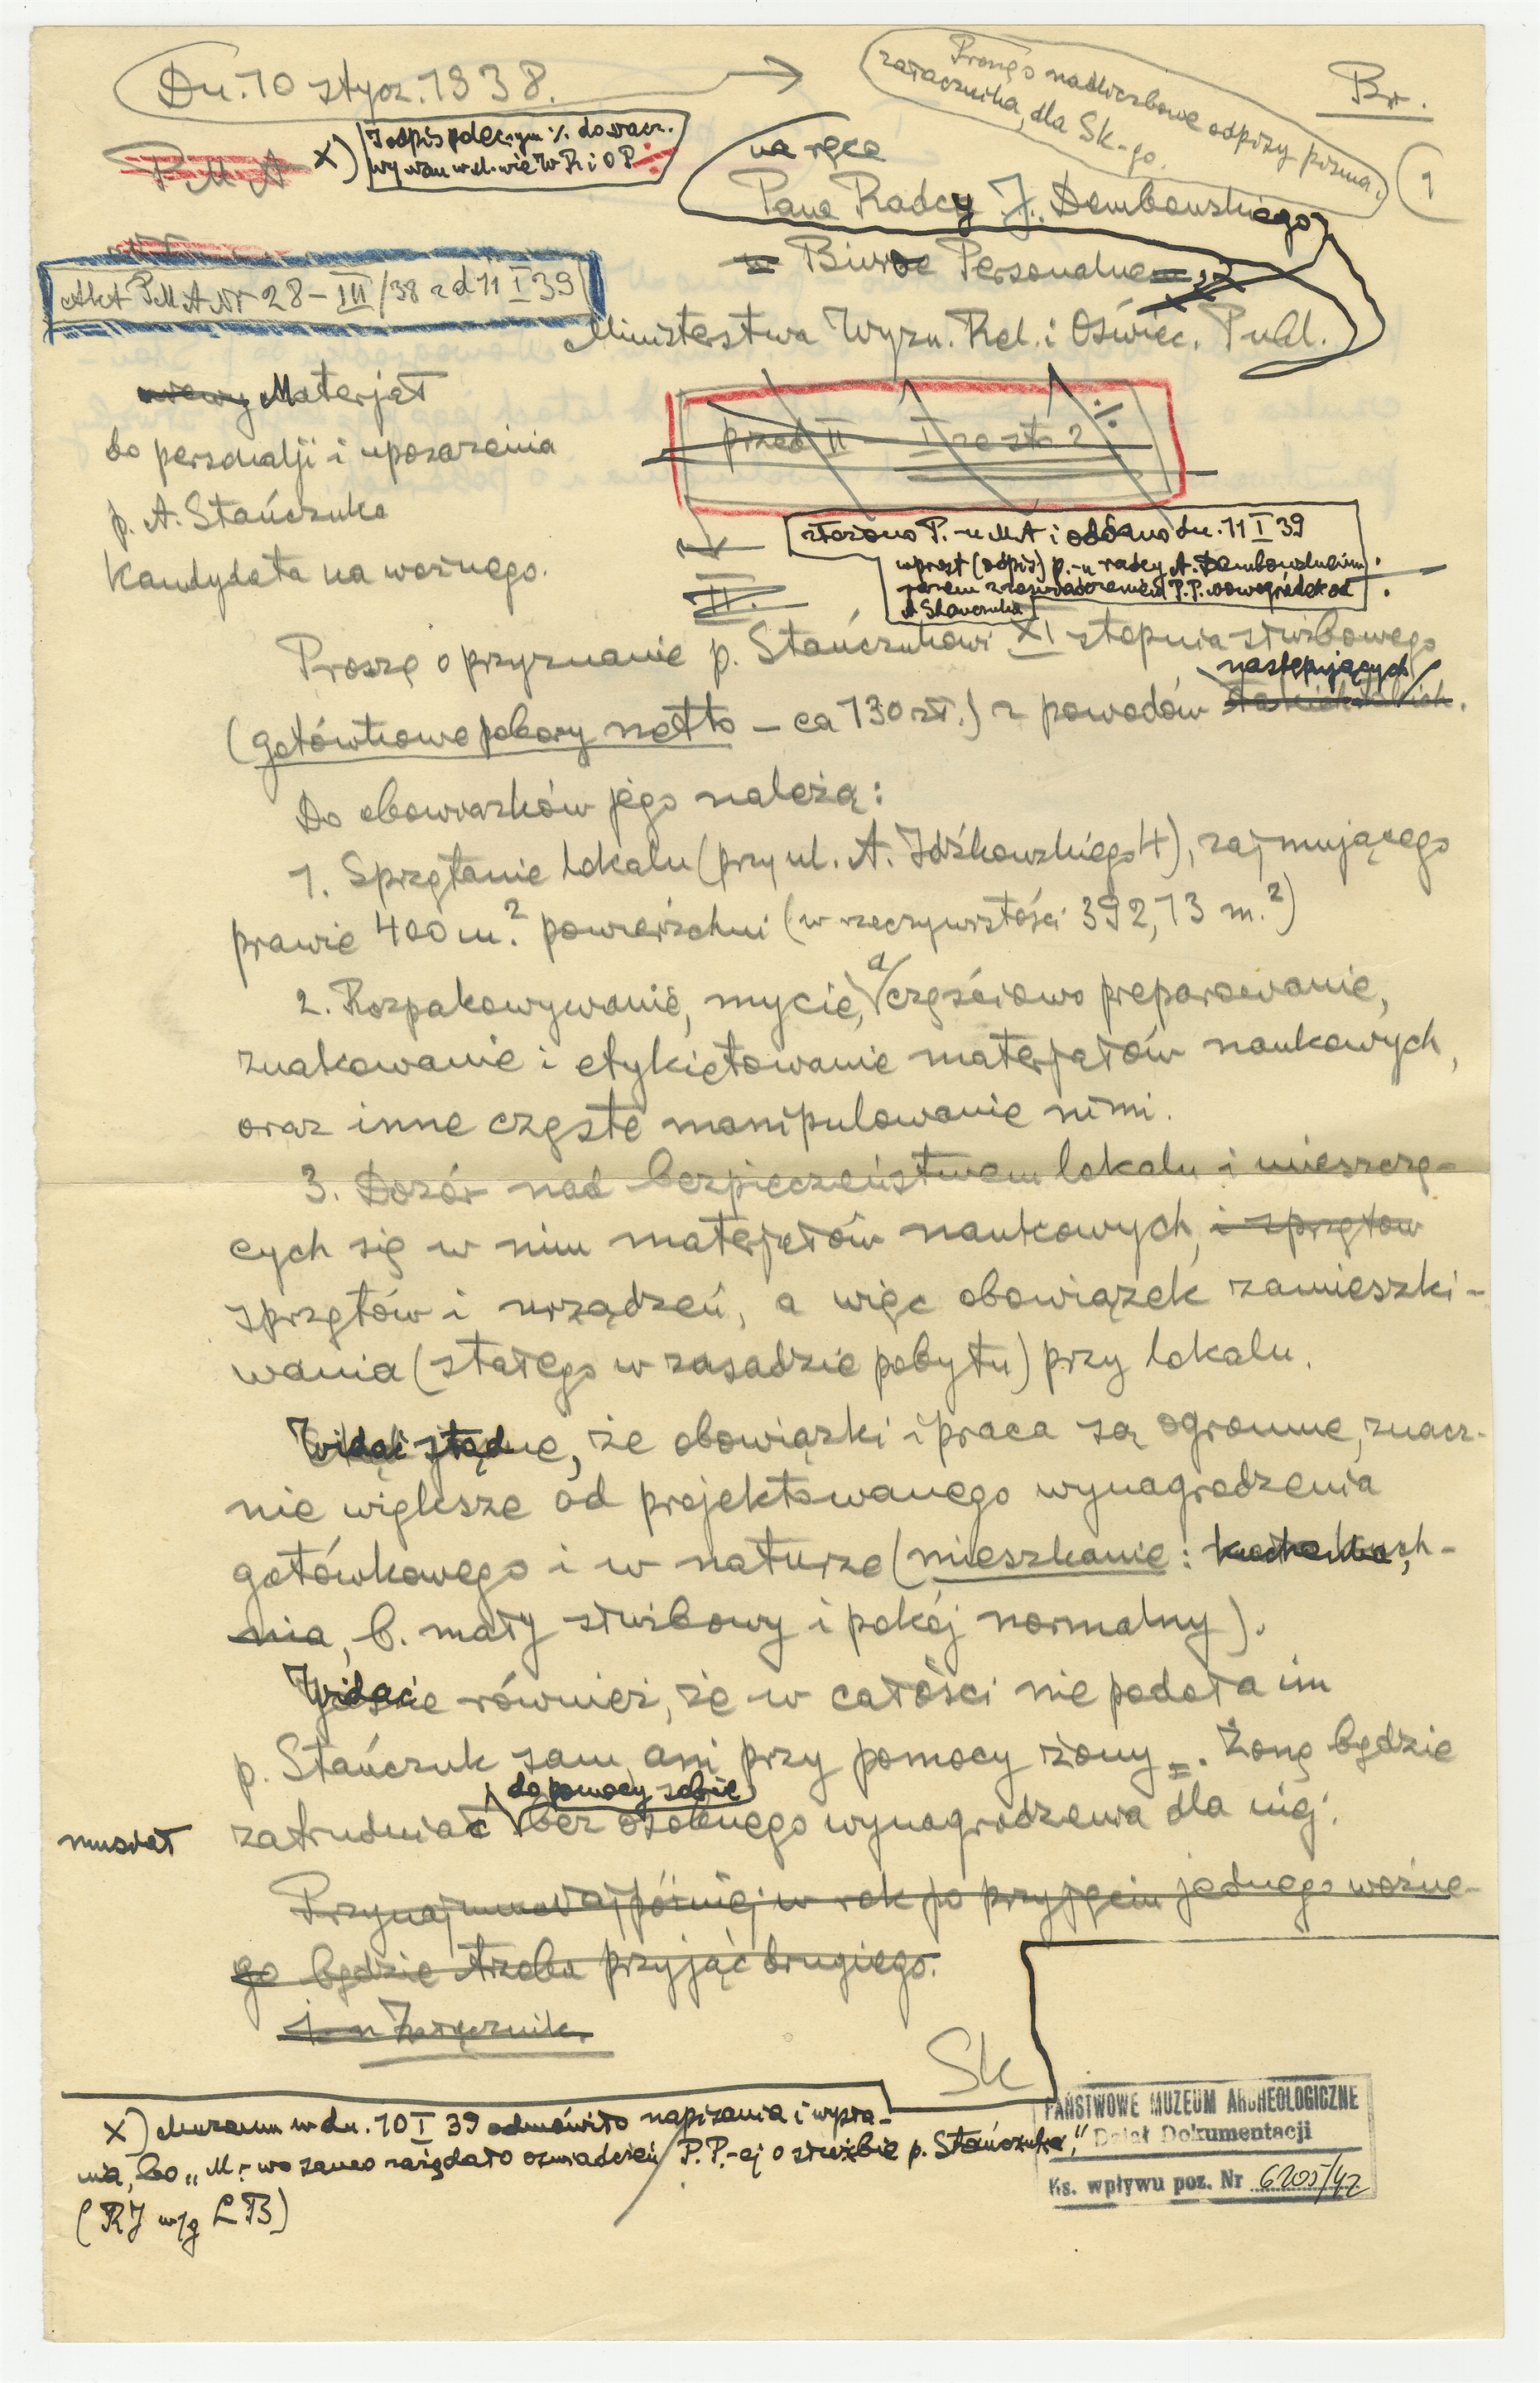 Dn. 10 stycz. 1938.
Proszę o nadliczbowe odpisy pisma,
załącznika, dla Sk-go.
Br.
1
P M A
X)
na ręce
Pana Radcy J. Dembowskiego
w Biurze Personalnem
Ministerstwa Wyzn. Rel. i Oświec. Publ.
Akt PMA Nr 28–III/38 z d 11 I 39
Materjał
do personalji i uposażenia
p. A. Stańczuka
kandydata na woźnego.
przed II
złożono P.-u M.A i odd. dn. 11 I 39
wprost (odpis) p.-u radcy A. Dembowskiemu
II.
Proszę o przyznanie p. Stańczukowi XI stopnia służbowego
(gotówkowe pobory netto – ca 130 zł.) z powodów następujących
Do obowiązków jego należą:
1. Sprzątanie lokalu (przy ul. A. Idźkowskiego 4), zajmującego
prawie 400 m.² powierzchni (w rzeczywistości 392,13 m.²)
2. Rozpakowywanie, mycie, a częściowo preparowanie,
znakowanie i etykietowanie materjałów naukowych,
oraz inne częste manipulowanie nimi.
3. Dozór nad bezpieczeństwem lokalu i mieszczą-
cych się w nim materjałów naukowych, i sprzętów
sprzętów i urządzeń, a więc obowiązek zamieszki-
wania (stałego w zasadzie pobytu) przy lokalu.
Widać stąd, że obowiązki i praca są ogromne, znacz-
nie większe od projektowanego wynagrodzenia
gotówkowego i w naturze (mieszkanie: kuch-
nia, b. mały służbowy i pokój normalny).
Widać również, że w całości nie podoła im
p. Stańczuk sam, ani przy pomocy żony. Żonę będzie
do pomocy sobie
musiał zatrudniać bez osobnego wynagrodzenia dla niej.
Najpóźniej w rok po przyjęciu jednego woźne-
go będzie trzeba przyjąć drugiego.
1 Załącznik.
Sk
X) Muzeum w dn. 10 I 39 odmówiło napisania i wysła-
nia, bo „M.-wo samo zażądało oświadczeń P.P.-ej o służbie p. Stańczuka,"
(RJ wg LB)
PAŃSTWOWE MUZEUM ARCHEOLOGICZNE
Dział Dokumentacji
Ks. wpływu poz. Nr 6205/42